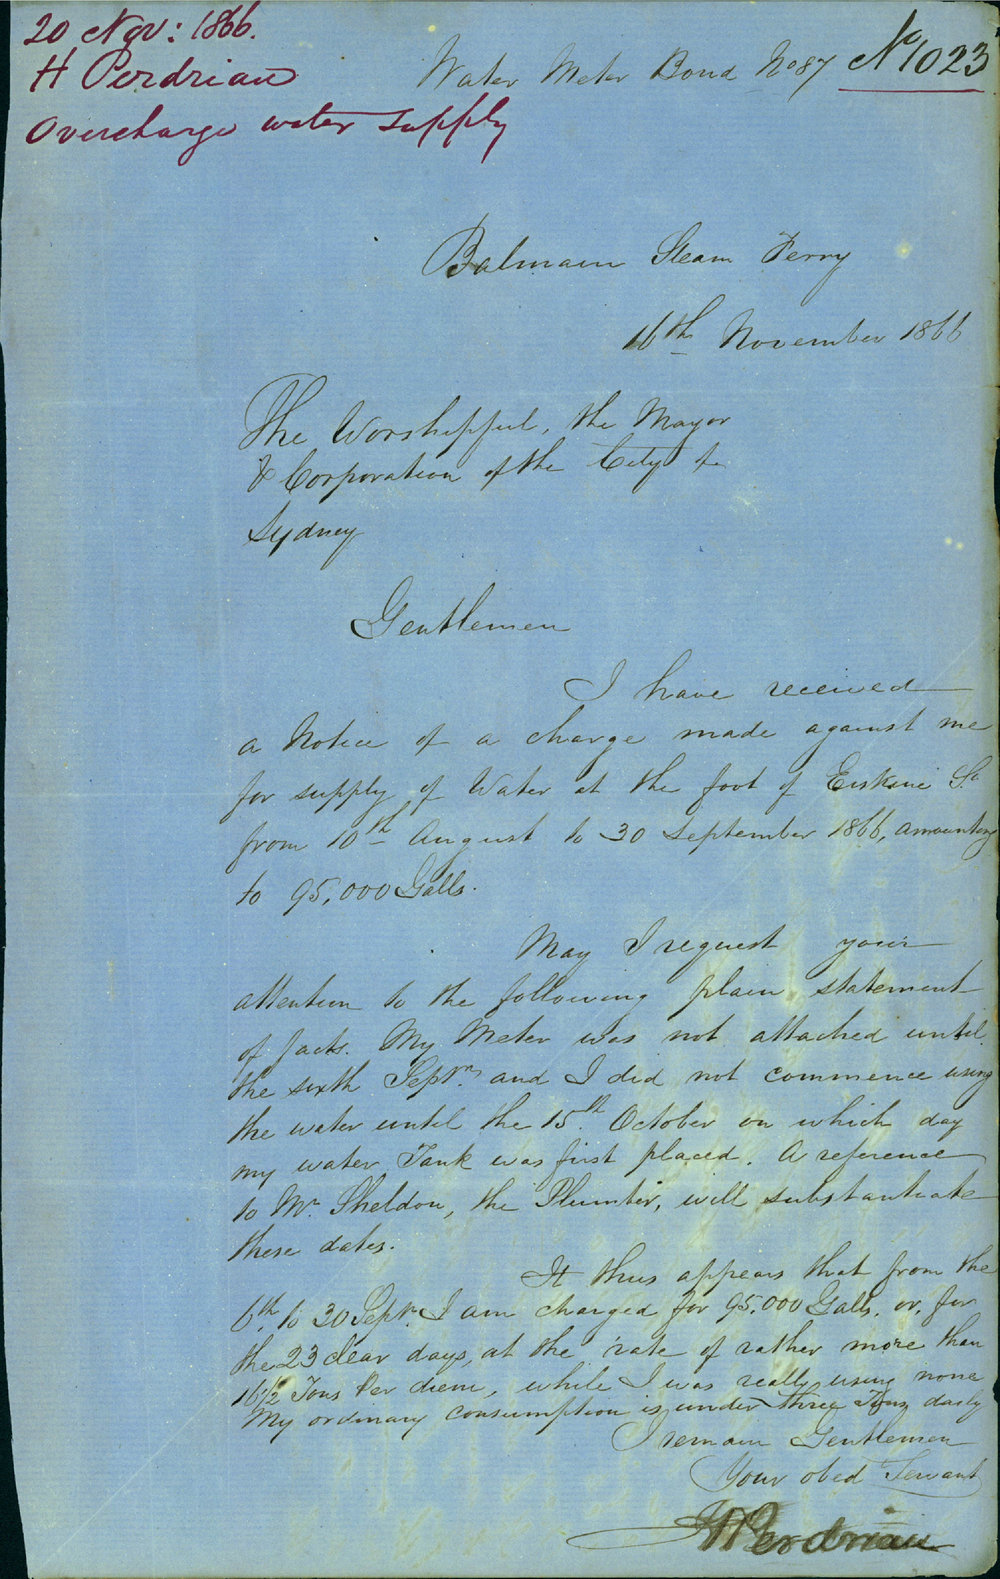 20 Nov: 1866.
H Perdriau
Overcharge water supply
Water Meter Bond No 87
No 1023
Balmain Steam Ferry
16th November 1866
The Worshipful, the Mayor
& Corporation of the City of
Sydney
Gentlemen
I have received
a Notice of a charge made against me
for supply of Water at the foot of Erskine St.
from 10th August to 30 September 1866, amounting
to 95,000 Galls.
May I request your
attention to the following plain statement
of facts. My Meter was not attached until
the sixth Septr. and I did not commence using
the water until the 15th. October on which day
my water Tank was first placed. A reference
to Mr. Sheldon, the Plumber, will substantiate
these dates.
It thus appears that from the
6th. to 30 Septr. I am charged for 95,000 Galls. or, for
the 23 clear days, at the rate of rather more than
16 1/2 Tons Per diem, while I was really using none
My ordinary consumption is under three Tons daily
I remain Gentlemen
Your obed Servant
H Perdriau